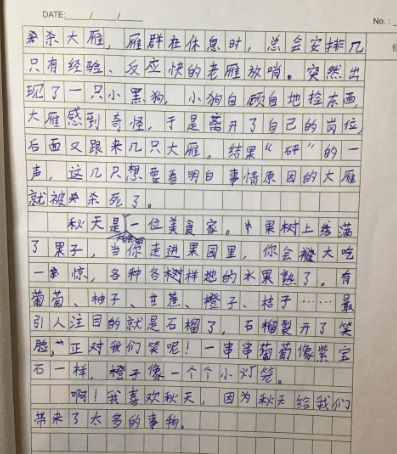 DATE: / / No.:
杀大雁，雁群在休息时，总会安排几
只有经验、反应快的老雁放哨。突然出
现了一只小黑狗，小狗自顾自地捡东西，
大雁感到奇怪，于是离开了自己的岗位，
后面又跟来几只大雁。结果“砰”的一
声，这几只想要看明白事情原因的大雁
就被杀死了。
秋天是一位美食家。果树上结满
了果子，当你走进果园里，你会大吃
一惊，各种各样地的水果熟了。有
葡萄、柚子、甘蔗、橙子、桔子……最
引人注目的就是石榴了，石榴裂开了笑
脸，正对我们笑呢！一串串葡萄像紫宝
石一样，橙子像一个个小灯笼。
啊！我喜欢秋天，因为秋天给我们
带来了太多的事物。